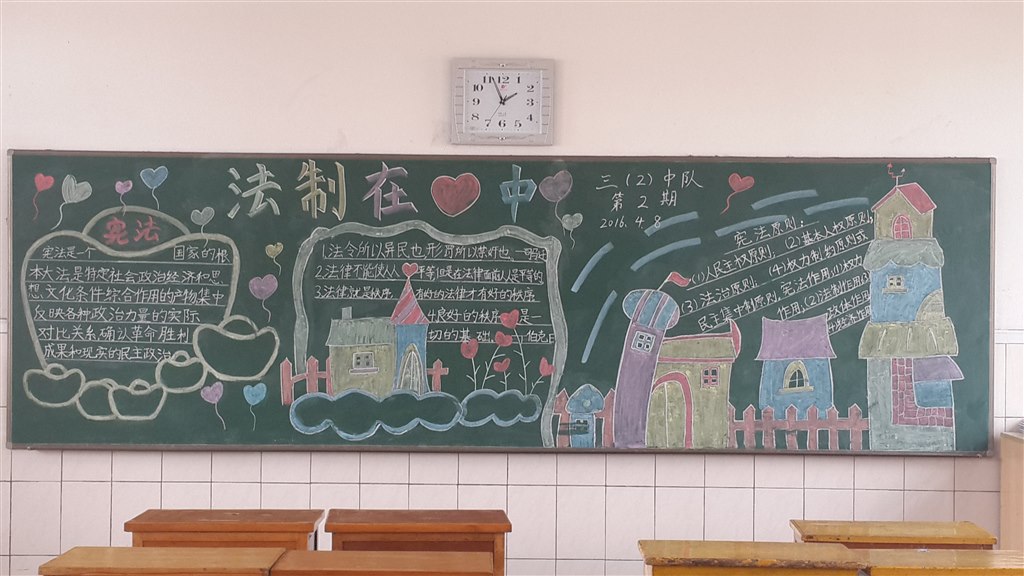 11 12 1
10 2
9 3
8 4
7 6 5
法制在中
三(2)中队
第2期
2016.4.8
宪法
宪法是一个 国家的根
本大法是特定社会政治经济和思
想文化条件综合作用的产物集中
反映各种政治力量的实际
对比关系确认革命胜利
成果和现实的民主政治
1.法令所以导民也形罚所以禁奸也
2.法律不能使人人平等但是在法律面前人是平等的
3.法律就是秩序 有好的法律才有好的秩序
4.良好的秩序是一
切的基础
宪法原则:
(1)人民主权原则. (2)基本人权原则.
(3)法治原则. (4)权力制约原则
民主集中制原则. 宪法作用:(1)权力
作用.(2)法制作用